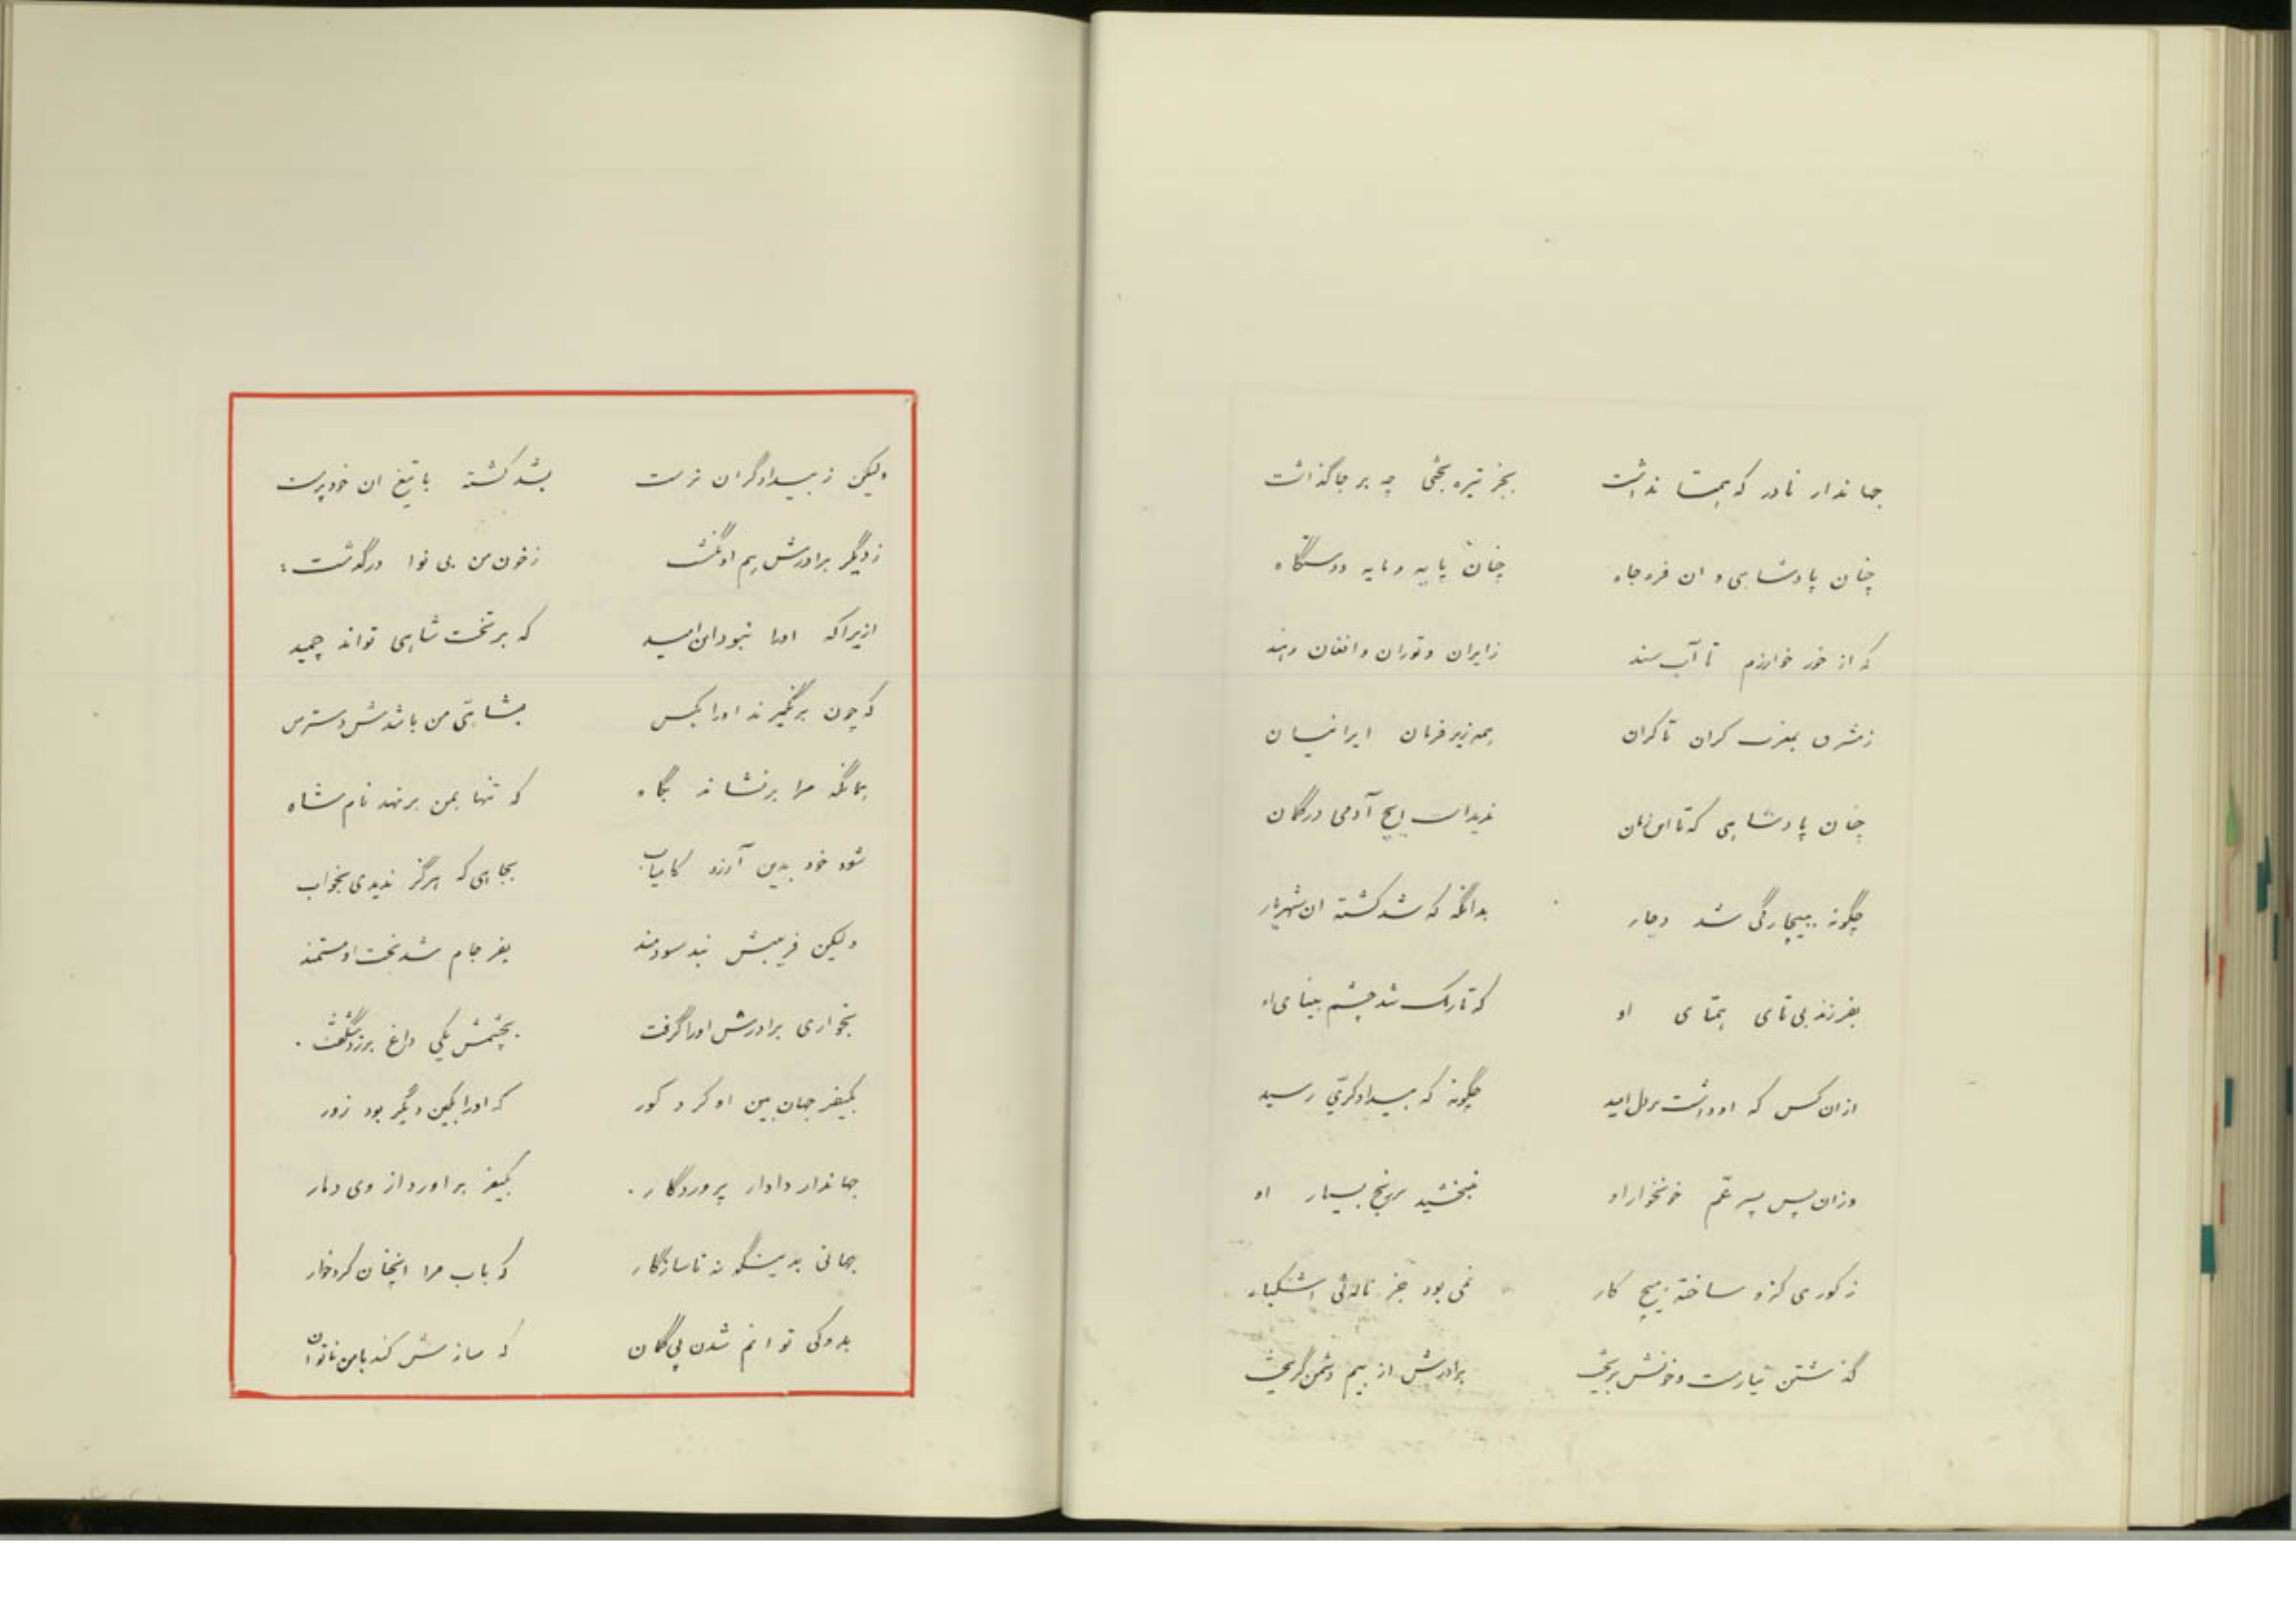 جهاندار نادر که همتا نداشت بجز تیره بختی چه بر جا گذاشت
چنان پادشاهی و ان فر و جاه چنان پایه و مایه و دستگاه
که از خوارزم تا آب سند ز ایران و توران و افغان و هند
ز مشرق بمغرب کران تا کران همه زیر فرمان ایرانیان
چنان پادشاهی که تا این زمان ندیدست هیچ آدمی در گمان
چگونه ببیچارگی شد دچار بدانگه که شد کشته ان شهریار
بفرزند بی تای همتای او که تاریک شد چشم بینای او
ازان کس که او داشت بر دل امید چگونه که بیدادگری رسید
وزان پس پسر عم خونخوار او نبخشید بر رنج بسیار او
ز کوری کزو ساخته هیچ کار نمی بود جز ناله‌ئی اشکبار
گذشتن نیارست و خونش بریخت برادرش از بیم دشمن گریخت
ولیکن ز بیدادگران نرست بشد کشته با تیغ ان خودپرست
ز دیگر برادرش هم او نگشت ز خون من بی نوا درگذشت
ازیراکه اورا نبود این امید که بر تخت شاهی تواند چمید
که چون برنگیرند اورا بکس بشاهی من باشدش دسترس
بمانگه مرا برنشاند بگاه که تنها بمن برنهد نام شاه
شود خود بدین آرزو کامیاب بجاهی که هرگز ندیدی بخواب
ولیکن فریبش نبد سودمند بفرجام شد بخت او مستمند
بخواری برادرش اورا گرفت بچشمش یکی داغ برزد شگفت
بکیفر جهان بین او کرد کور که اورا بکین دیگر بود زور
جهاندار دادار پروردگار بکیفر براورد از وی دمار
جهانی بدینگونه ناسازگار که باب مرا اینچنان کرد خوار
بدو کی توانم شدن بی گمان که سازش کند با من ناتوان